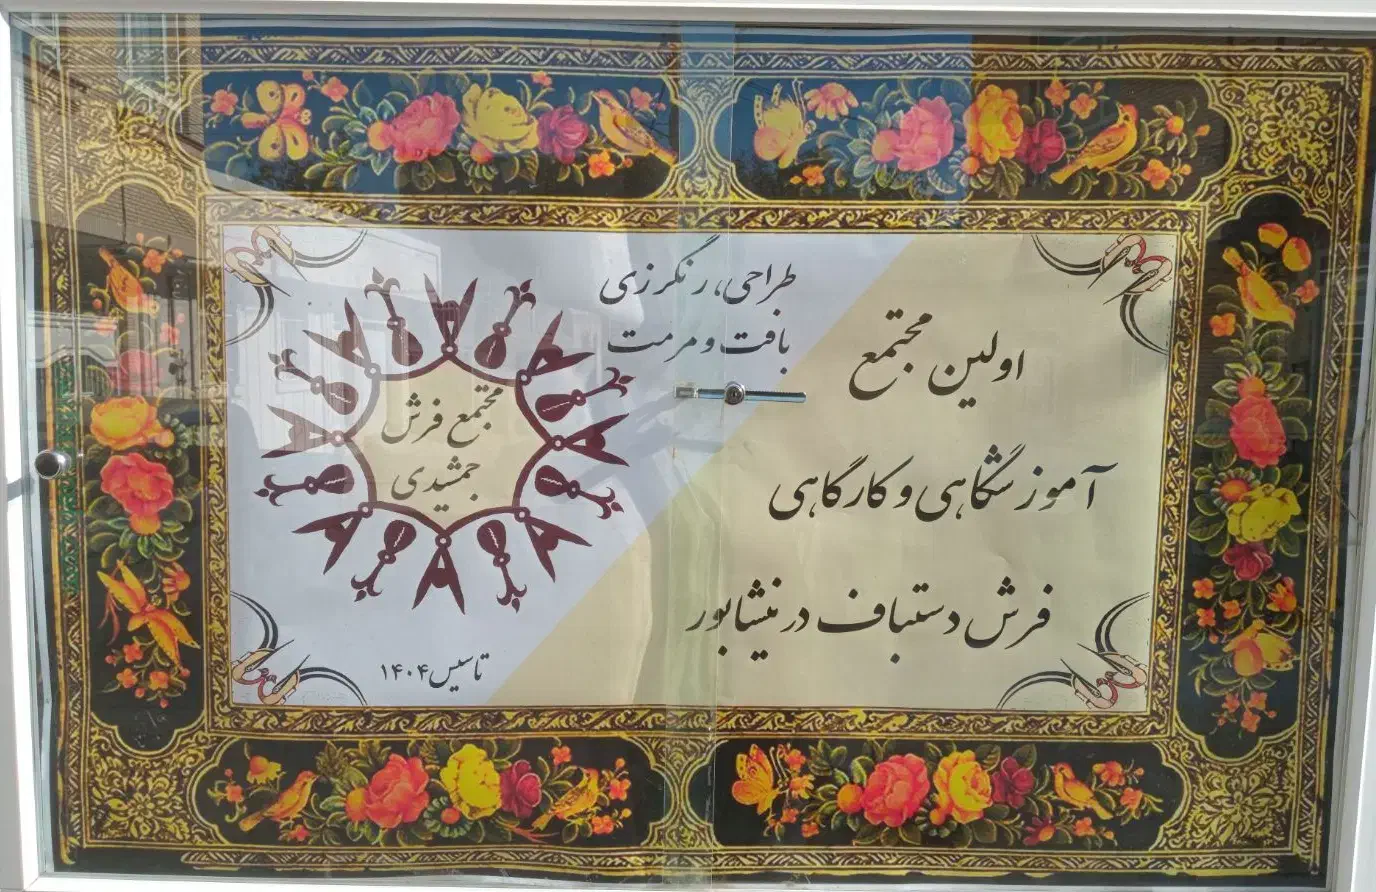 طراحی، رنگرزی
بافت و مرمت
اولین مجتمع
آموزشگاهی و کارگاهی
فرش دستباف در نیشابور
مجتمع فرش
جمشیدی
تاسیس ۱۴۰۴